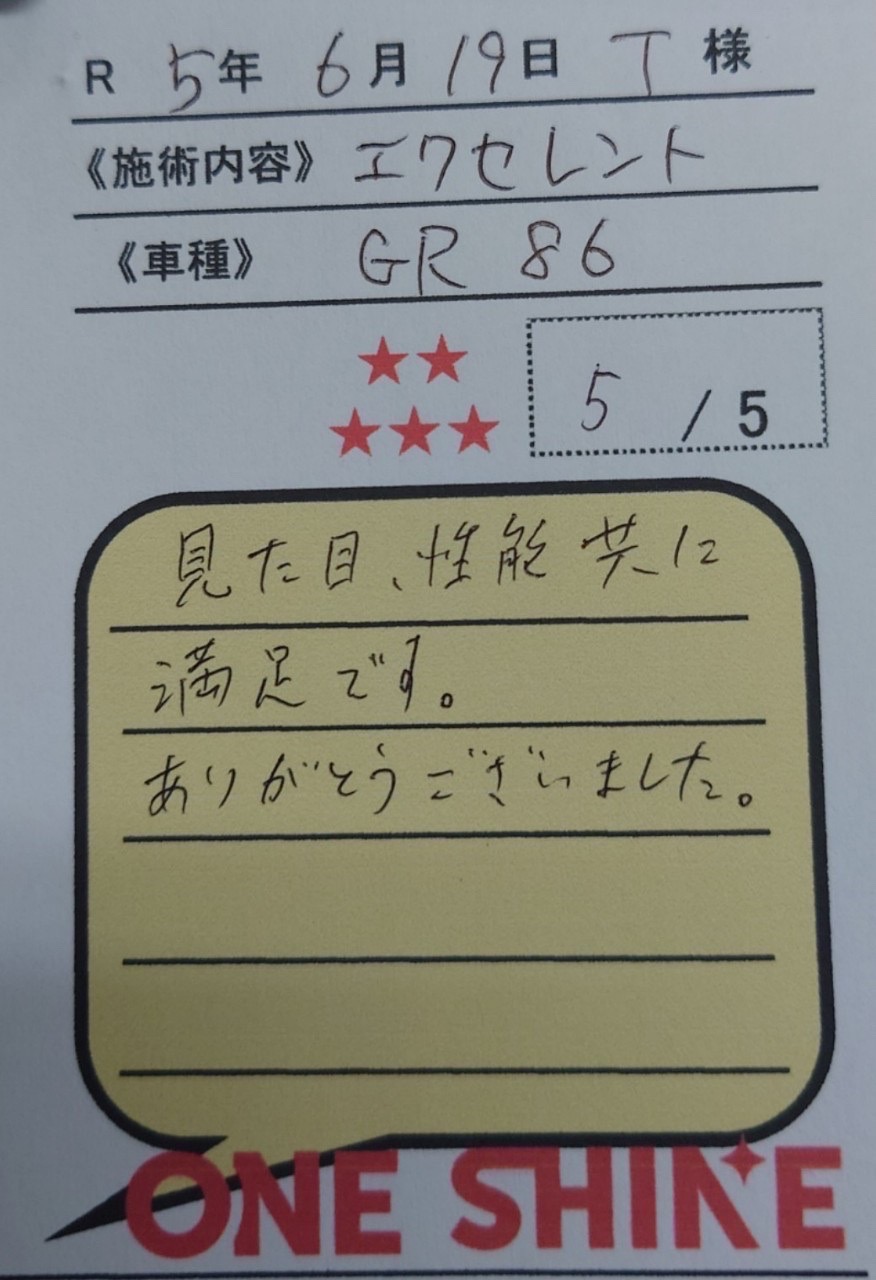 R 5年 6月 19日 T 様
《施術内容》 エクセレント
《車種》 GR 86
5 / 5
見た目、性能 共に
満足です。
ありがとうございました。
ONE SHINE